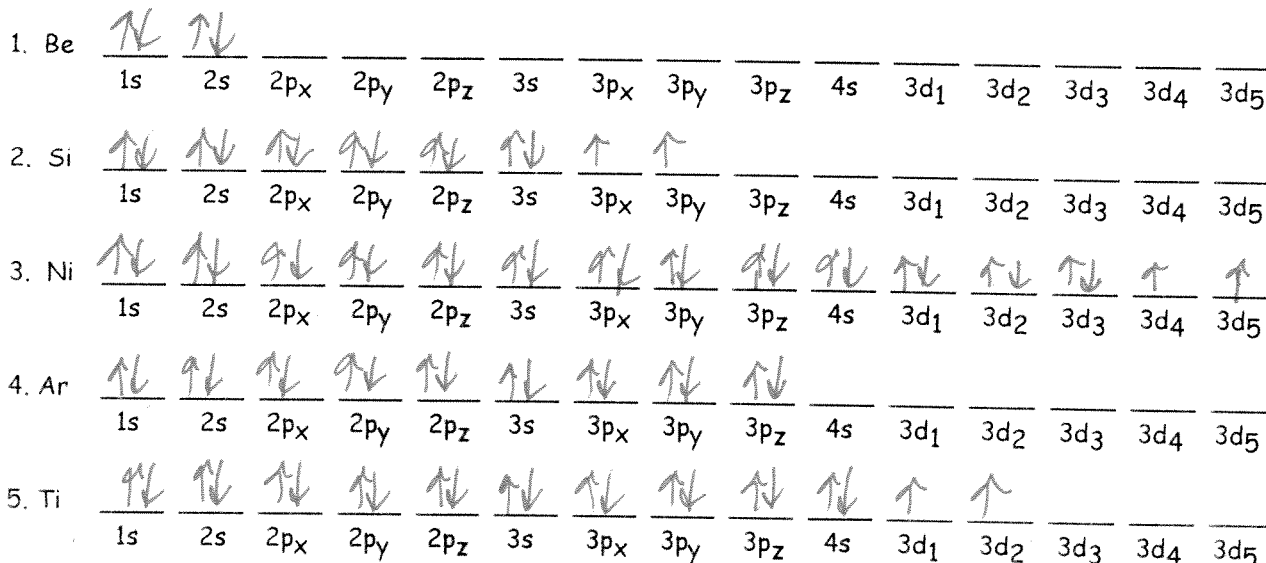 1. Be ↑↓ ↑↓
1s 2s 2px 2py 2pz 3s 3px 3py 3pz 4s 3d1 3d2 3d3 3d4 3d5
2. Si ↑↓ ↑↓ ↑↓ ↑↓ ↑↓ ↑↓ ↑ ↑
1s 2s 2px 2py 2pz 3s 3px 3py 3pz 4s 3d1 3d2 3d3 3d4 3d5
3. Ni ↑↓ ↑↓ ↑↓ ↑↓ ↑↓ ↑↓ ↑↓ ↑↓ ↑↓ ↑↓ ↑↓ ↑↓ ↑↓ ↑ ↑
1s 2s 2px 2py 2pz 3s 3px 3py 3pz 4s 3d1 3d2 3d3 3d4 3d5
4. Ar ↑↓ ↑↓ ↑↓ ↑↓ ↑↓ ↑↓ ↑↓ ↑↓ ↑↓
1s 2s 2px 2py 2pz 3s 3px 3py 3pz 4s 3d1 3d2 3d3 3d4 3d5
5. Ti ↑↓ ↑↓ ↑↓ ↑↓ ↑↓ ↑↓ ↑↓ ↑↓ ↑↓ ↑↓ ↑ ↑
1s 2s 2px 2py 2pz 3s 3px 3py 3pz 4s 3d1 3d2 3d3 3d4 3d5